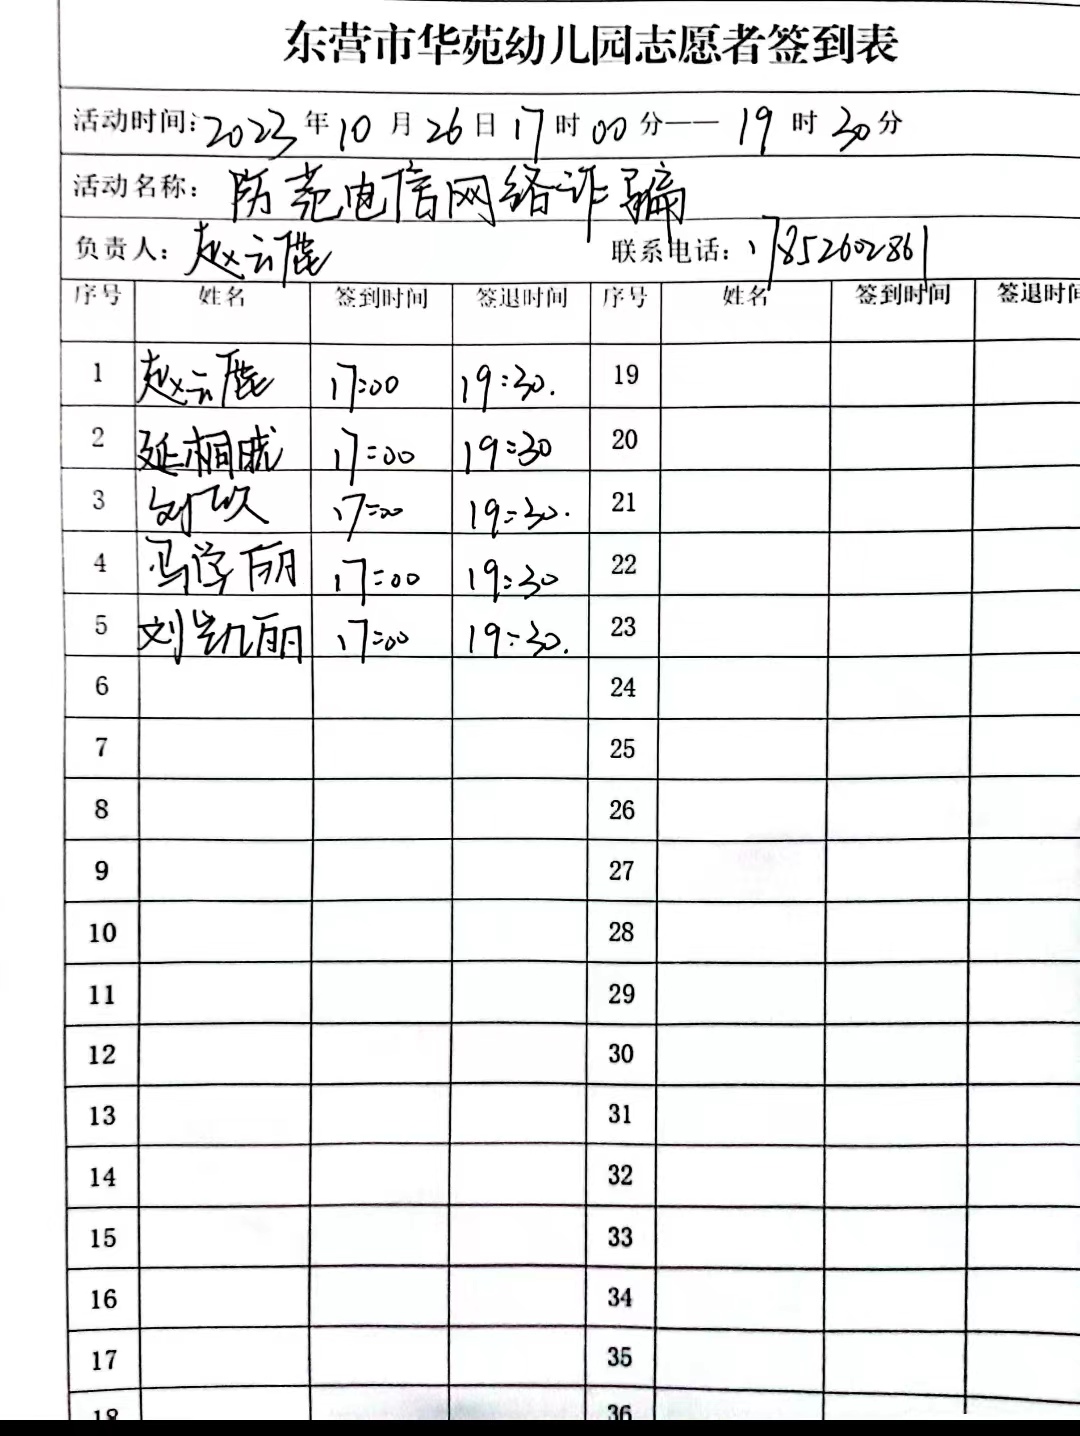 东营市华苑幼儿园志愿者签到表
活动时间:2023年10月26日17时00分——19时30分
活动名称：防范电信网络诈骗
负责人：赵云 联系电话：17852602861
序号 姓名 签到时间 签退时间 序号 姓名 签到时间 签退时间
1 赵云 17:00 19:30. 19
2 延 17:00 19:30 20
3 刘 17:00 19:30. 21
4 冯学丽 17:00 19:30 22
5 刘凯丽 17:00 19:30. 23
6 24
7 25
8 26
9 27
10 28
11 29
12 30
13 31
14 32
15 33
16 34
17 35
18 36